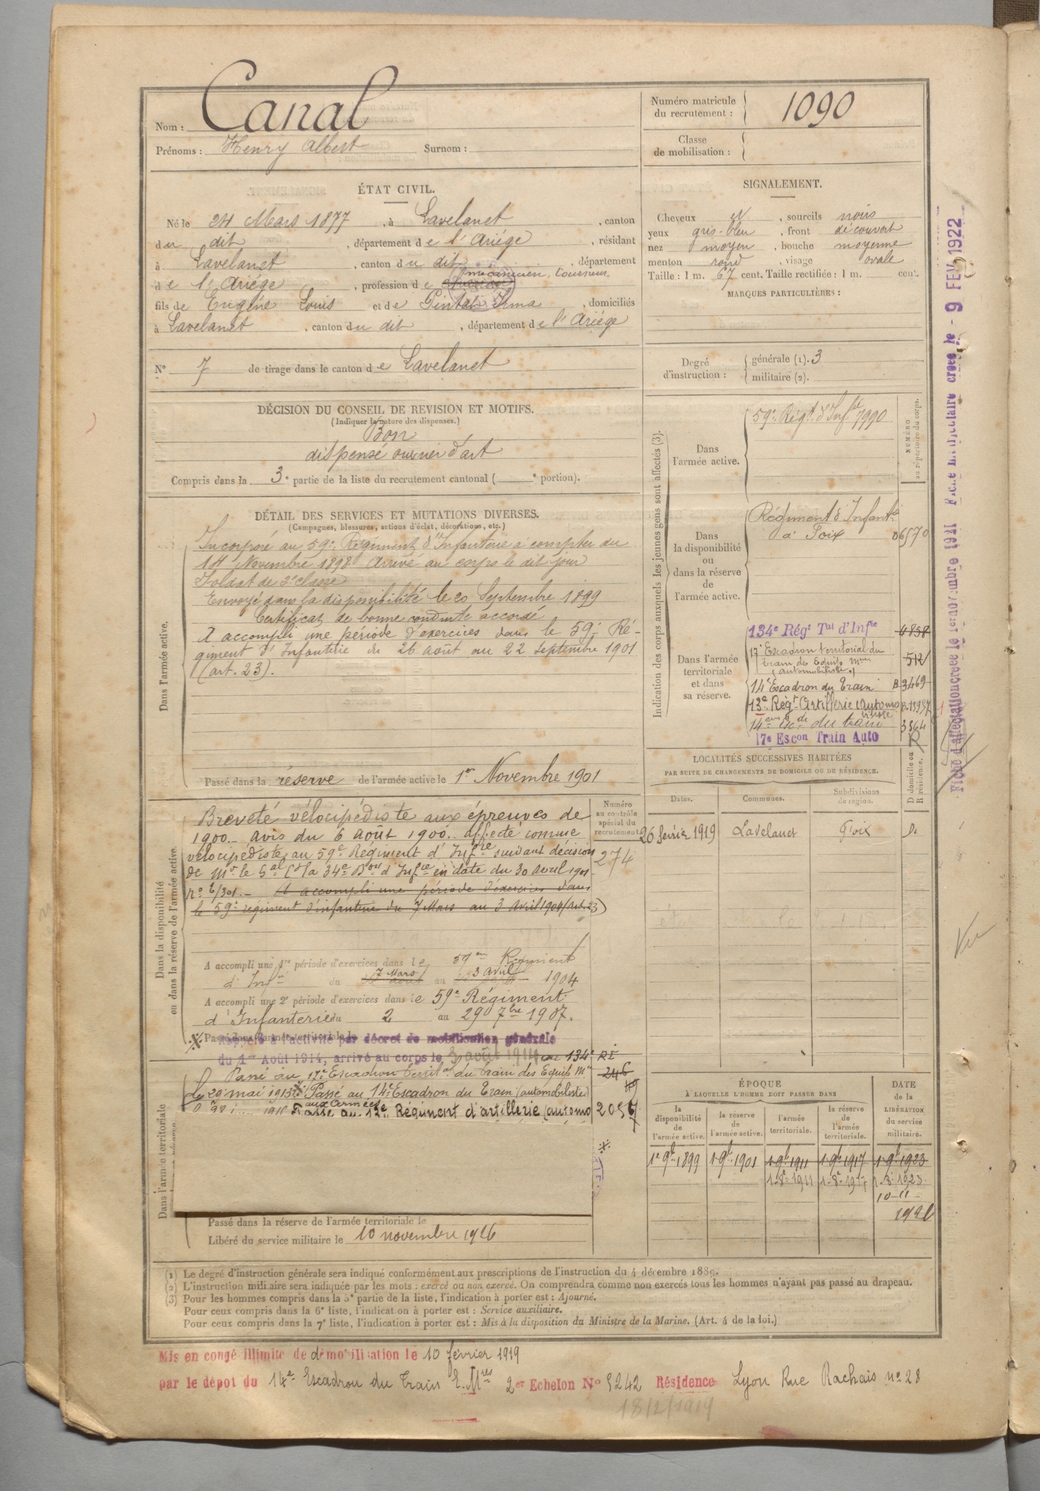 Nom : Canal
Prénoms : Henry Albert Surnom :
Numéro matricule du recrutement : 1090
Classe de mobilisation :
ÉTAT CIVIL.
Né le 24 Mars 1877 , à Lavelanet , canton
du dit , département de l'Ariège , résidant
à Lavelanet , canton du dit , département
de l'Ariège , profession de mécanicien, tourneur
fils de Eugène Louis et de Irma , domiciliés
à Lavelanet , canton du dit , département de l'Ariège
N° 7 de tirage dans le canton de Lavelanet
SIGNALEMENT.
Cheveux , sourcils noirs
yeux gris-bleu , front découvert
nez moyen , bouche moyenne
menton rond , visage ovale
Taille : 1 m. 67 cent. Taille rectifiée : 1 m. cent.
MARQUES PARTICULIÈRES :
Degré d'instruction : générale (1). 3
militaire (2).
DÉCISION DU CONSEIL DE REVISION ET MOTIFS.
(Indiquer la nature des dispenses.)
Bon
dispensé ouvrier d'art
Compris dans la 3e partie de la liste du recrutement cantonal ( e portion).
DÉTAIL DES SERVICES ET MUTATIONS DIVERSES.
(Campagnes, blessures, actions d'éclat, décorations, etc.)
Dans l'armée active.
Incorporé au 59e Régiment d'Infanterie à compter du
14 Novembre 1898 Arrivé au corps le dit jour
Soldat de 2e classe
Envoyé dans la disponibilité le 20 Septembre 1899
Certificat de bonne conduite accordé
A accompli une période d'exercices dans le 59e Ré-
giment d'Infanterie du 26 août au 22 Septembre 1901
(art. 23).
Passé dans la réserve de l'armée active le 1er Novembre 1901
Dans la disponibilité ou dans la réserve de l'armée active.
Breveté vélocipédiste aux épreuves de
1900. avis du 6 Août 1900. affecté comme
vélocipédiste au 59e Régiment d'Infrie suivant décision
de Mr le Gal Ct la 34e Don d'Infrie en date du 30 avril 1901
A accompli une période d'exercices dans
le 59e régiment d'infanterie du 7 Mars au 3 Avril 1904 (art. 23)
Numéro au contrôle spécial du recrutement
274
A accompli une 1re période d'exercices dans le 59me Régiment
d'Infie du 7 Mars au 3 avril 1904
A accompli une 2e période d'exercices dans le 59e Régiment
d'Infanterie du 2 au 29 7bre 1907.
Rappelé à l'activité par décret de mobilisation générale
du 1er Août 1914, arrivé au corps le 3 août 1914 134e RI
Passé au 17e Escadron territ. du train des Equip. Mres
le 29 mai 1915 Passé au 14e Escadron du Train (automobiliste)
aux Armées
Passé au 13e Régiment d'artillerie (automo
Dans l'armée territoriale
Passé dans la réserve de l'armée territoriale le
Libéré du service militaire le 10 novembre 1926
Indication des corps auxquels les jeunes gens sont affectés (3).
NUMÉRO au répertoire du corps.
Dans l'armée active. 59e Régt d'Infie 1990
Dans la disponibilité ou dans la réserve de l'armée active. Régiment d'Infantie à Foix 06570
Dans l'armée territoriale et dans sa réserve.
134e Régt Tal d'Infie
17e Escadron territorial du
train des Equip. Mres
(automobilistes) 512
14e Escadron du Train
13e Régt Artillerie automo
17e Escon Train Auto
LOCALITÉS SUCCESSIVES HABITÉES
PAR SUITE DE CHANGEMENTS DE DOMICILE OU DE RÉSIDENCE.
D domicile ou R résidence.
Dates. Communes. Subdivisions de région.
26 février 1919 Lavelanet Foix D.
ÉPOQUE
À LAQUELLE L'HOMME DOIT PASSER DANS
DATE de la LIBÉRATION du service militaire.
la disponibilité de l'armée active. la réserve de l'armée active. l'armée territoriale. la réserve de l'armée territoriale.
1er 9b 1899 1 9b 1901 1 9b 1911 1 9b 1917 1 9b 1923
Fiche d'affectation créée le 15 novembre 1911
Fiche matriculaire créée le - 9 FEV 1922
Vu
(1) Le degré d'instruction générale sera indiqué conformément aux prescriptions de l'instruction du 4 décembre 1889.
(2) L'instruction militaire sera indiquée par les mots : exercé ou non exercé. On comprendra comme non exercés tous les hommes n'ayant pas passé au drapeau.
(3) Pour les hommes compris dans la 5e partie de la liste, l'indication à porter est : Ajourné.
Pour ceux compris dans la 6e liste, l'indication à porter est : Service auxiliaire.
Pour ceux compris dans la 7e liste, l'indication à porter est : Mis à la disposition du Ministre de la Marine. (Art. 4 de la loi.)
Mis en congé illimité de démobilisation le 10 février 1919
par le dépôt du 14e Escadron du Train E. Mres 2er Echelon N° 5242 Résidence Lyon Rue Rachais n° 28
18/2/1919